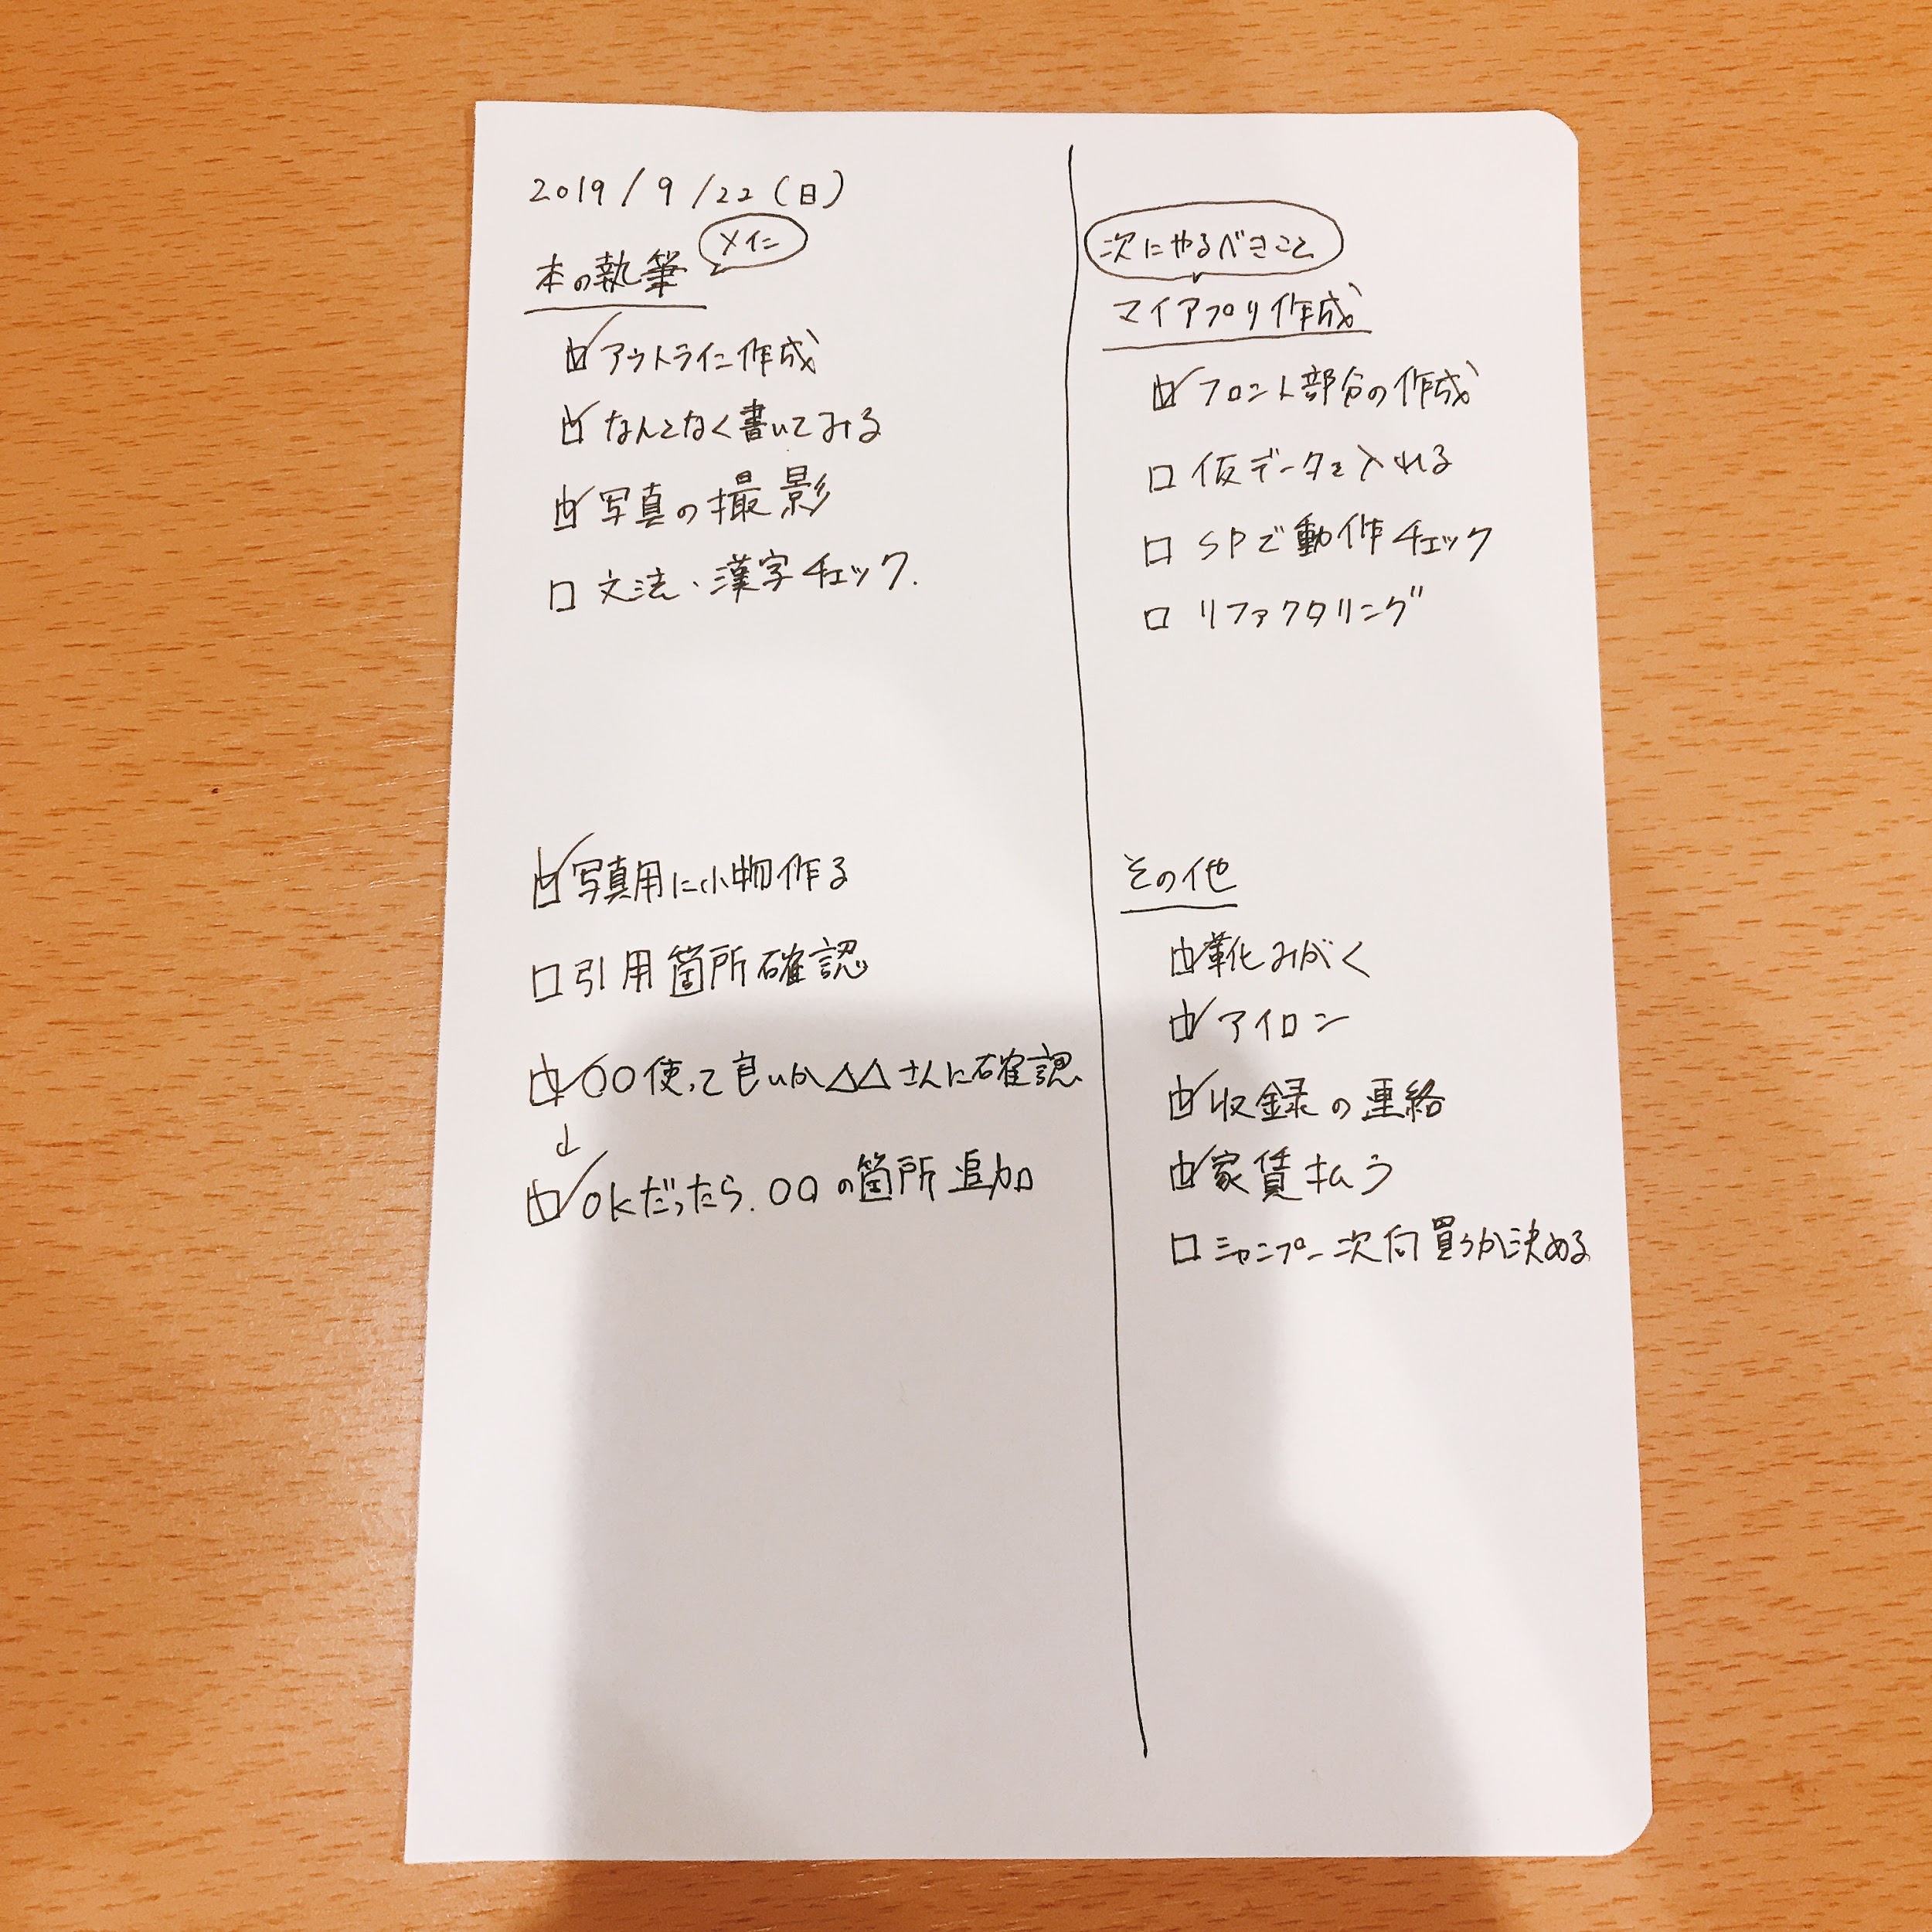 2019/9/22(日)
本の執筆
メイン
□アウトライン作成
□なんとなく書いてみる
□写真の撮影
□文法、漢字チェック.
□写真用に小物作る
□引用箇所確認
□〇〇使って良いか△△さんに確認
↓
□OKだったら、〇〇の箇所追加
次にやるべきこと
マイアプリ作成
□フロント部分の作成
□仮データを入れる
□SPで動作チェック
□リファクタリング
その他
□靴みがく
□アイロン
□収録の連絡
□家賃払う
□シャンプー次何買うか決める